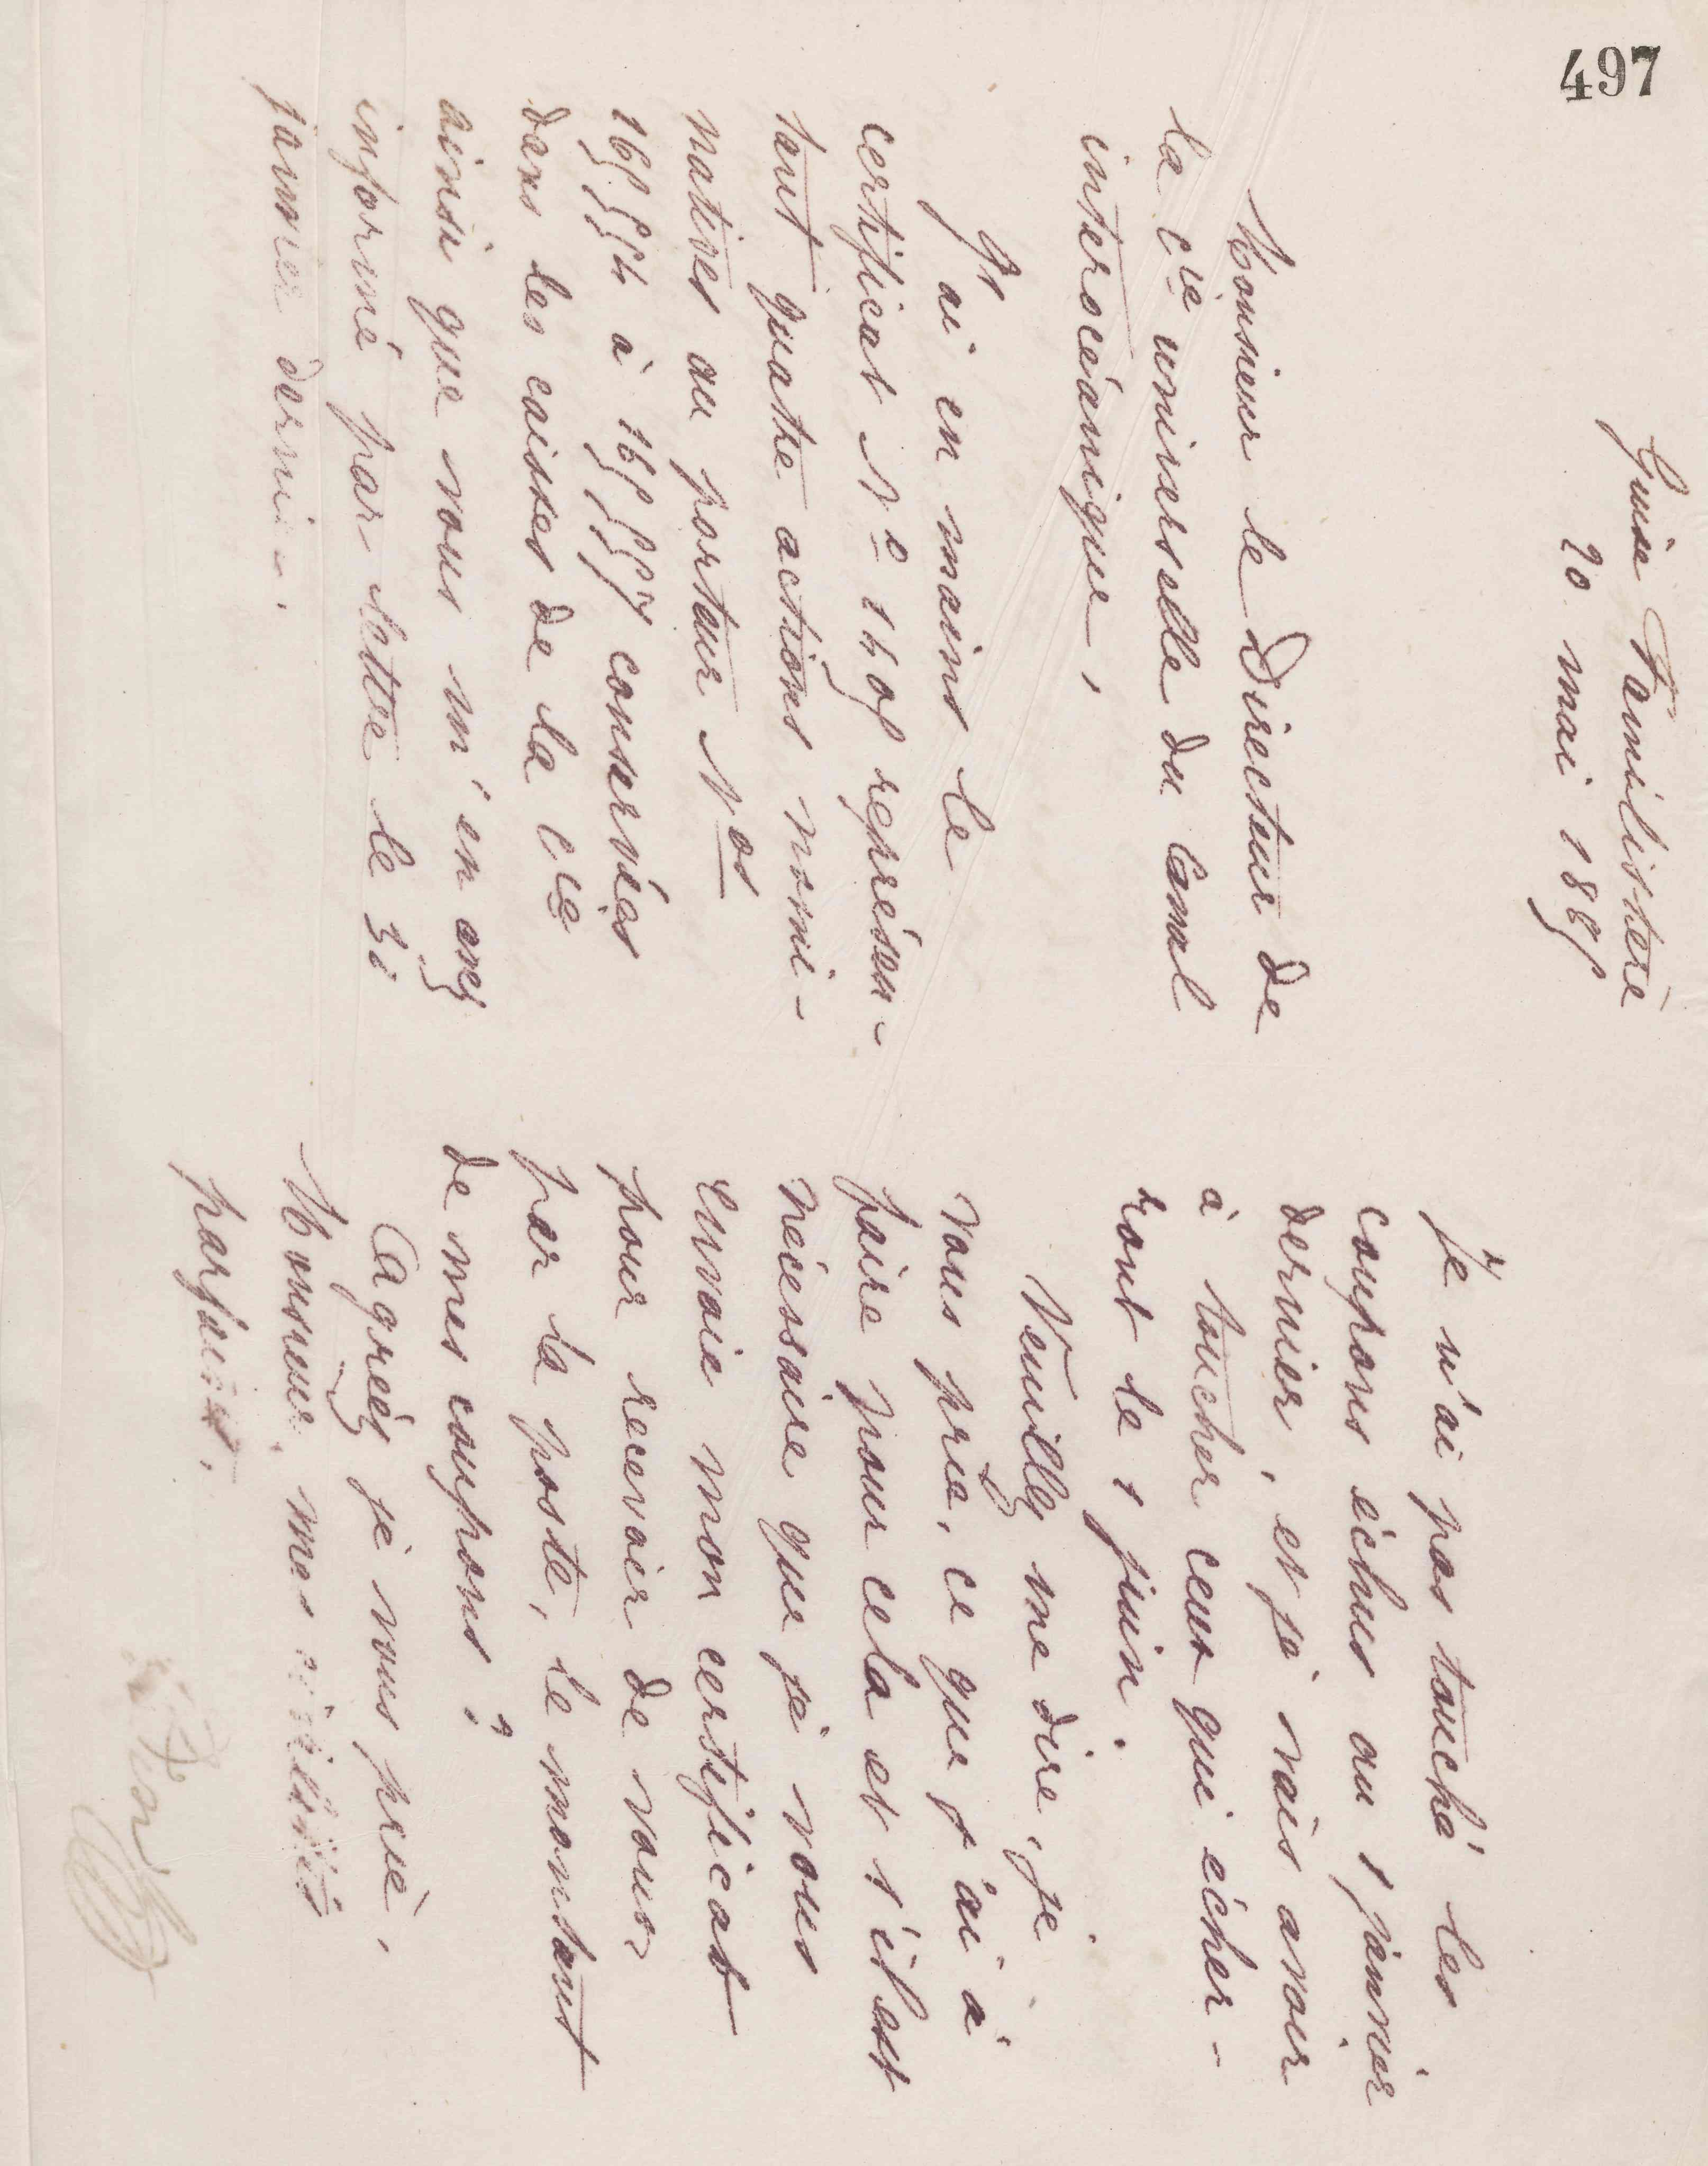 497
Guise Familistère
20 mai 1885
Monsieur le Directeur de
la Cie universelle du Canal
interocéanique,
J'ai en mains le
certificat No 1405 représen-
tant quatre actions nomi-
natives au porteur Nos
165554 à 165557 conservées
dans les caisses de la Cie
ainsi que vous m'en avez
informé par lettre le 31
janvier dernier.
Je n'ai pas touché les
coupons échus au 1 janvier
dernier, et je vais avoir
à toucher ceux qui écher-
ront le 1 juin.
Veuillez me dire, je
vous prie, ce que j'ai à
faire pour cela et s'il est
nécessaire que je vous
envoie mon certificat
pour recevoir de vous
par la poste, le montant
de mes coupons ?
Agréez je vous prie,
Monsieur, mes civilités
parfaites.